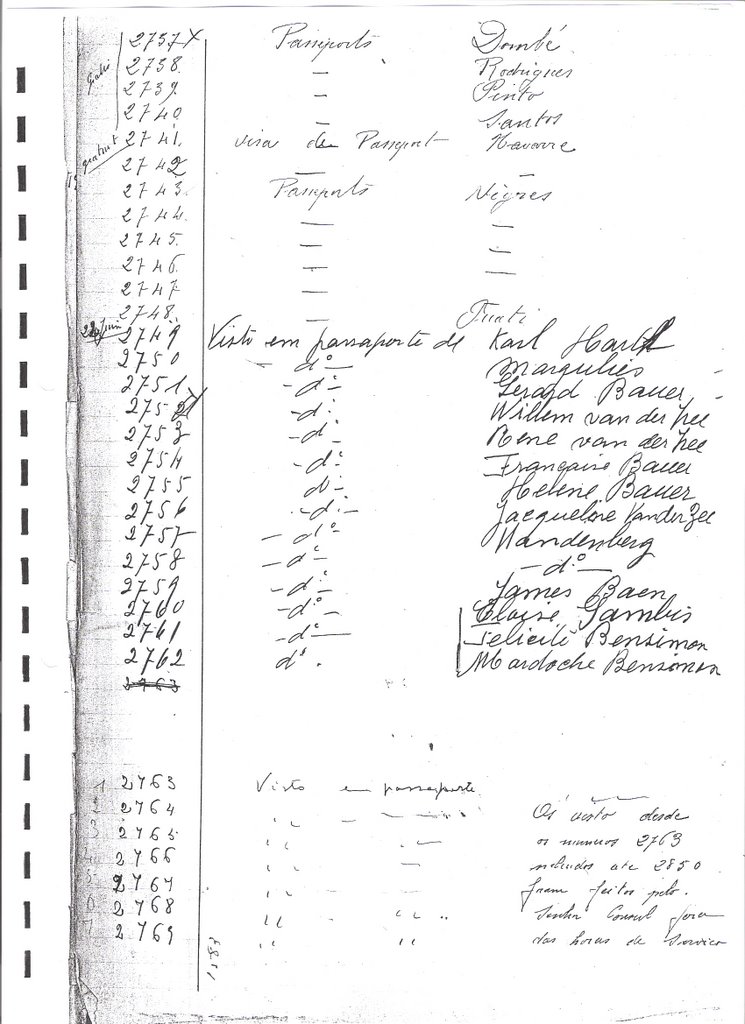 2737 X Passeports Dombé
2738 — Rodrigues
2739. — Pinto
2740 — Santos
gratuit 2741. visa de Passeport Navarre
2742 — —
2743 Passeports Nègres
2744. — —
2745. — —
2746. — —
2747 —
2748. —
22 Juin 2749 Visto em passaporte de Karl Hartl
2750 — dº — Margulies
2751 — dº — Gerard Bauer
2752 — dº Willem van der Zee
2753 — dº — René van der Zee
2754 — dº Française Bauer
2755 dº — Helene Bauer
2756 — dº — Jacqueline Vanderzee
2757 — dº — Wandenberg
2758 — dº — — dº —
2759 — dº — James Baen
2760 — dº — Eloise Gambis
2761 — dº — Felicité Bensimon
2762 dº. Mardoche Bensimon
2763
1 2763 Visto em passaporte
2 2764 " — — Os visto desde
3 2765 " " os numeros 2763
2766 " — incluidos ate 2850
5 2767 " — — foram feitos pelo
2768 " " Senhor Consul fora
7 2769 " " das horas de serviço